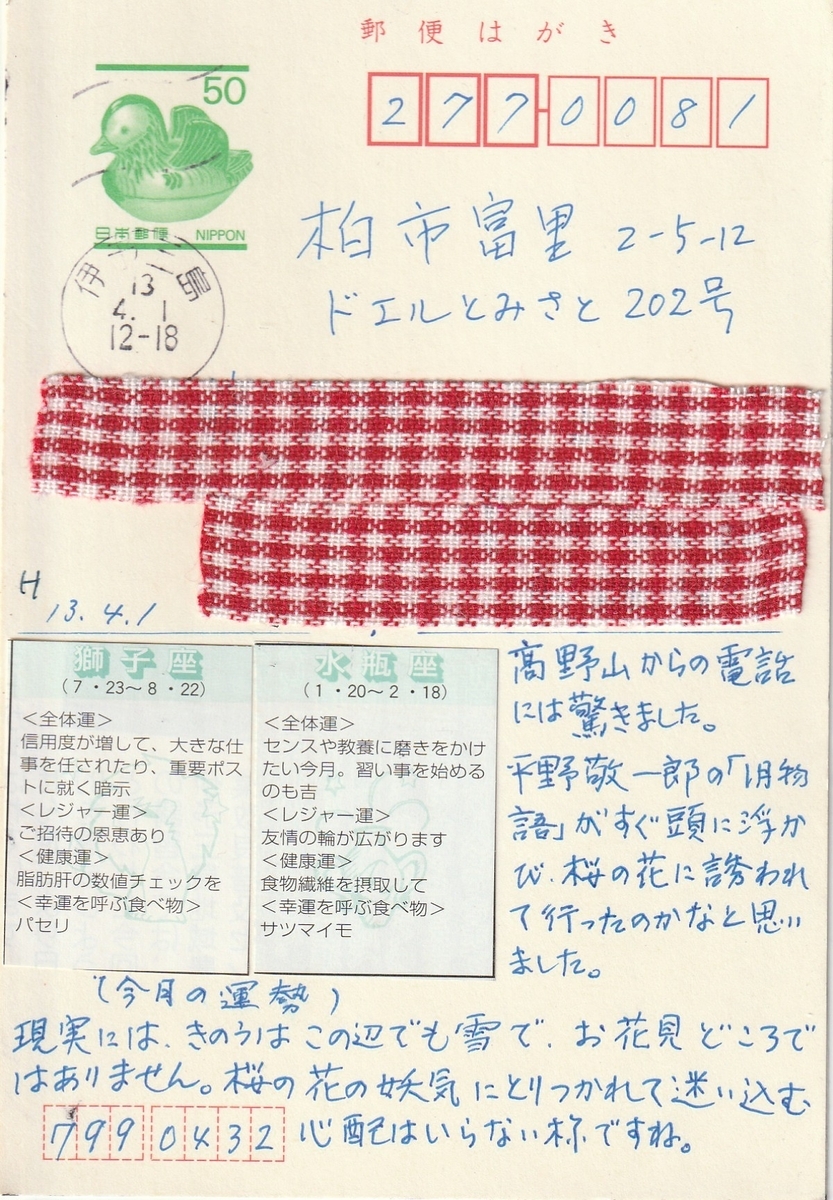 郵便はがき
50
日本郵便 NIPPON
277-0081
柏市富里 2-5-12
ドエルとみさと 202号
13
4. 1
12-18
H
13.4.1
獅子座
(7・23〜8・22)
<全体運>
信用度が増して、大きな仕
事を任されたり、重要ポス
トに就く暗示
<レジャー運>
ご招待の恩恵あり
<健康運>
脂肪肝の数値チェックを
<幸運を呼ぶ食べ物>
パセリ
水瓶座
(1・20〜2・18)
<全体運>
センスや教養に磨きをかけ
たい今月。習い事を始める
のも吉
<レジャー運>
友情の輪が広がります
<健康運>
食物繊維を摂取して
<幸運を呼ぶ食べ物>
サツマイモ
(今月の運勢)
高野山からの電話
には驚きました。
平野啓一郎の「一月物
語」がすぐ頭に浮か
び、桜の花に誘われ
て行ったのかなと思い
ました。
現実には、きのうはこの辺でも雪で、お花見どころで
はありません。桜の花の妖気にとりつかれて迷い込む
心配はいらない様ですね。
7990432